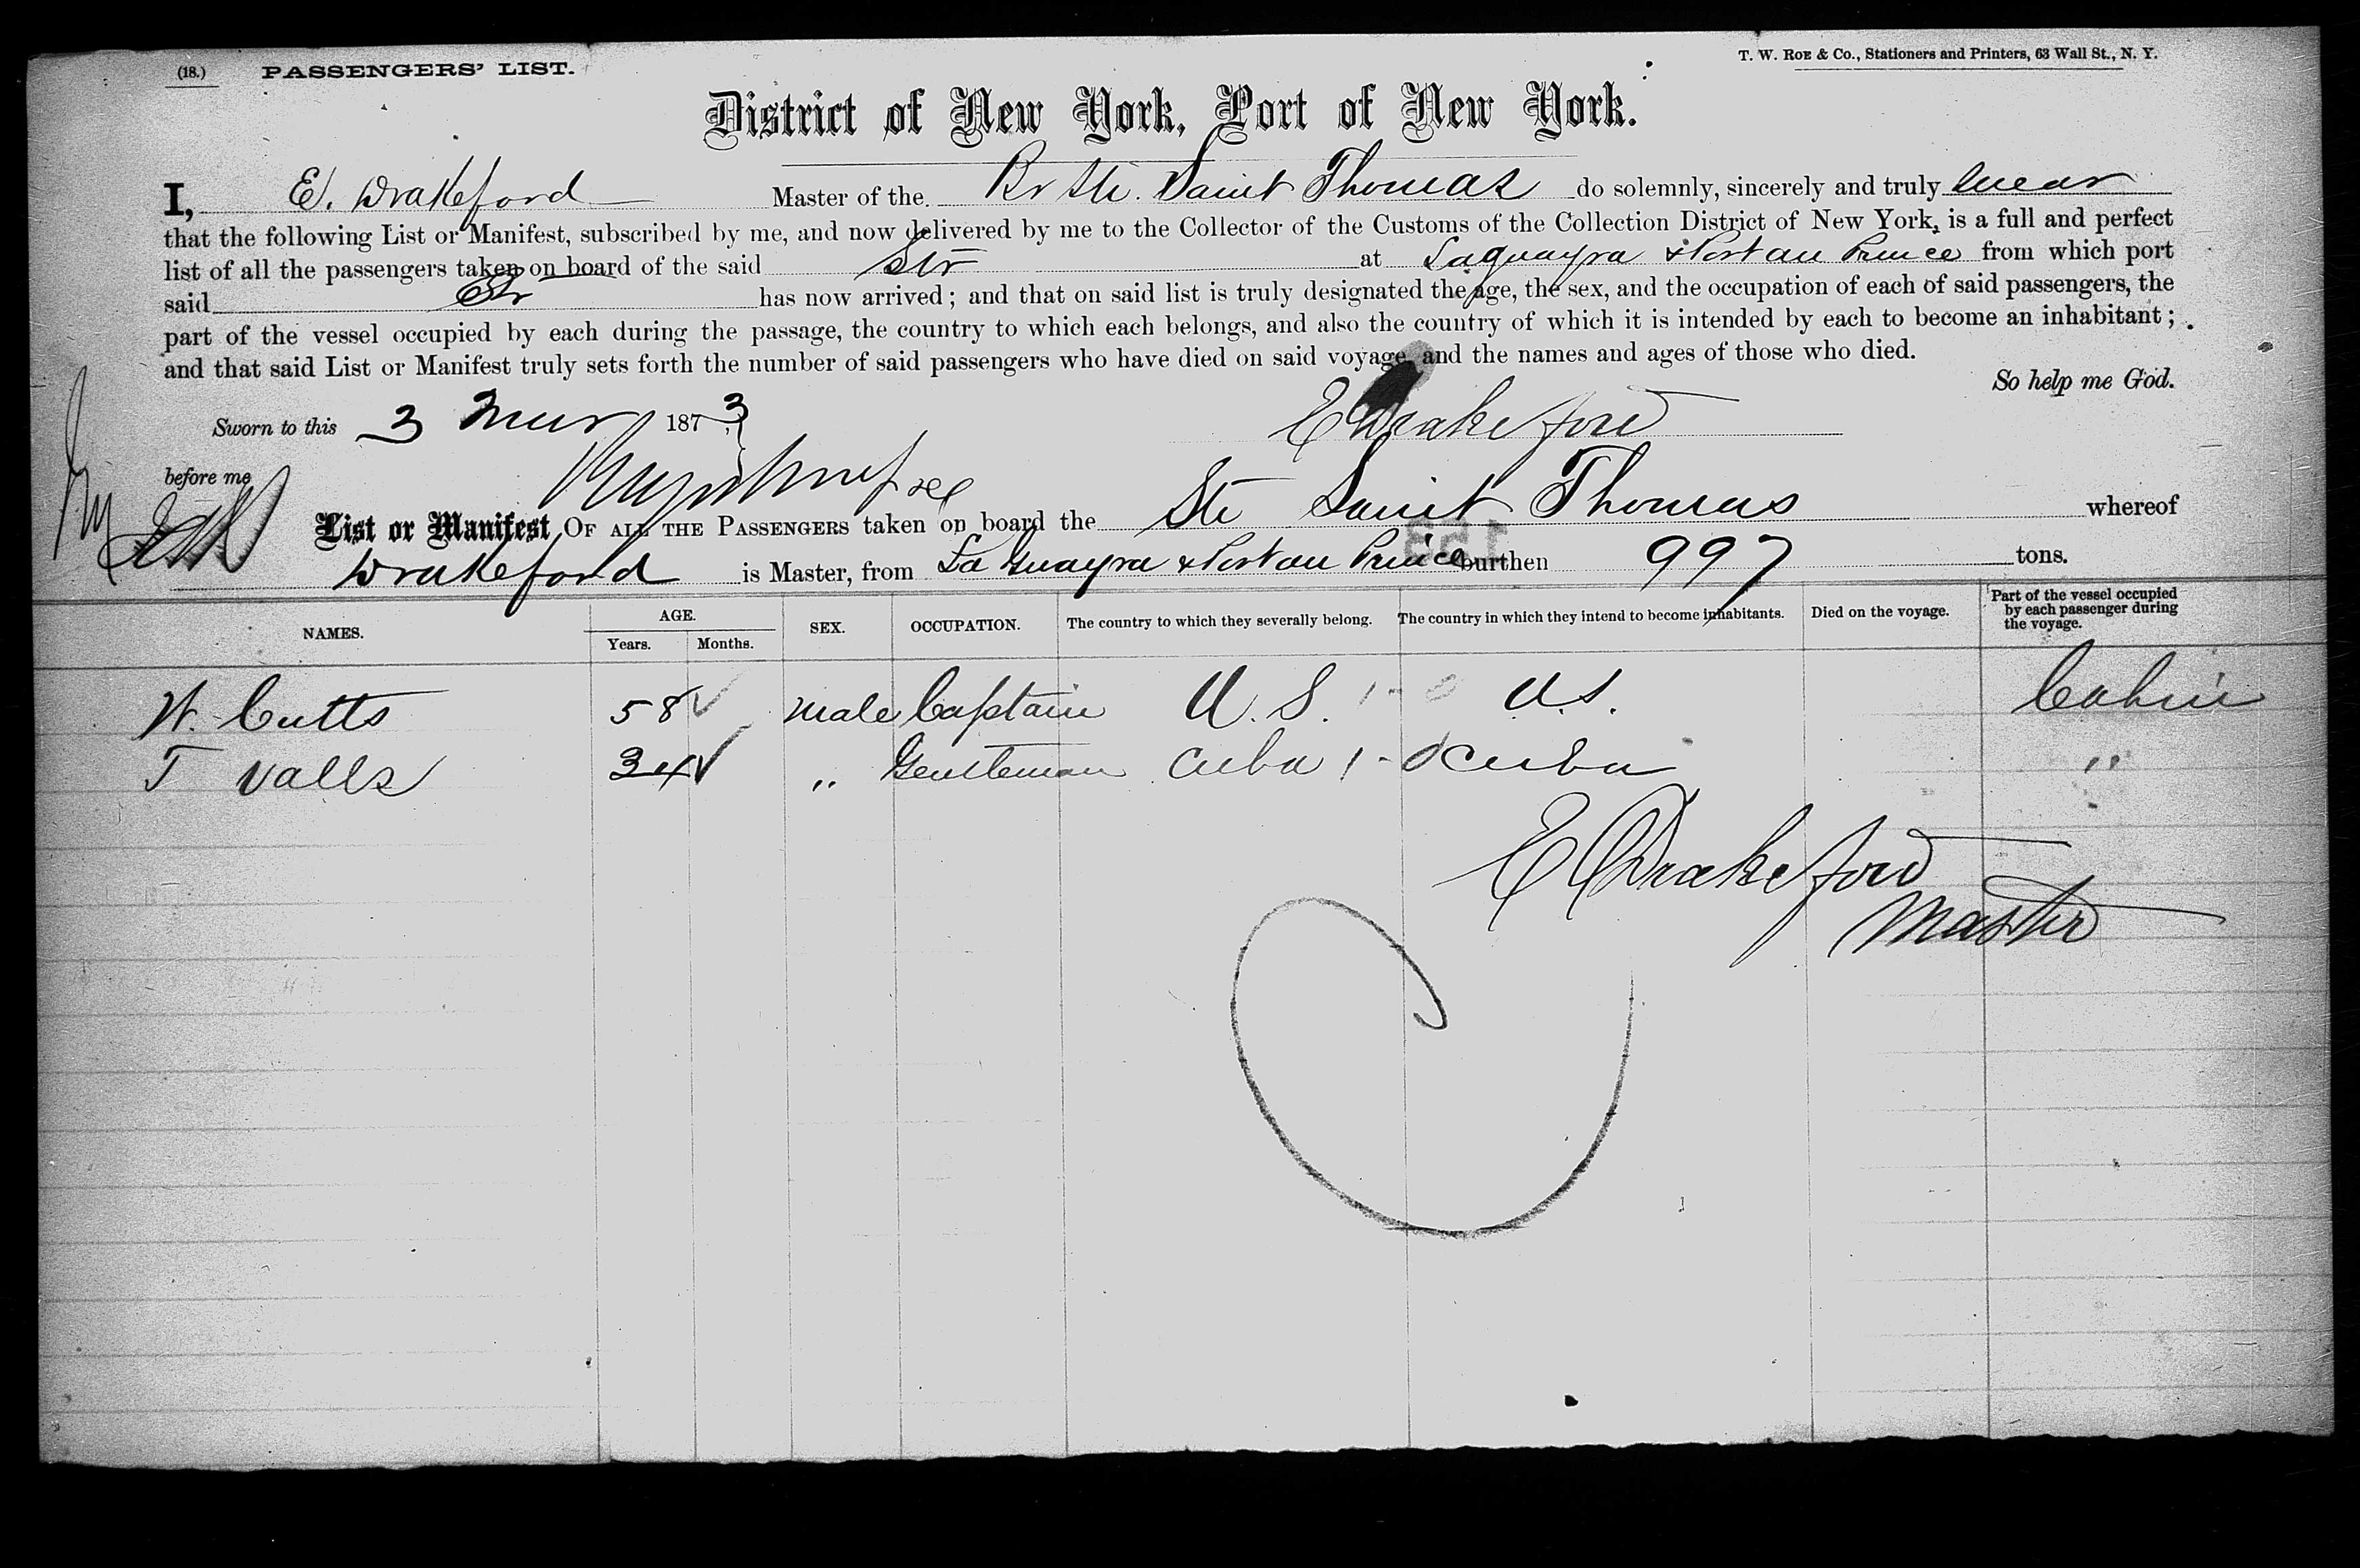 (18.) PASSENGERS' LIST. T. W. ROE & Co., Stationers and Printers, 63 Wall St., N. Y.
District of New York, Port of New York.
I, E. Drakeford Master of the Br Str. Saint Thomas do solemnly, sincerely and truly swear
that the following List or Manifest, subscribed by me, and now delivered by me to the Collector of the Customs of the Collection District of New York, is a full and perfect
list of all the passengers taken on board of the said Str at Laguayra & Port au Prince from which port
said Str has now arrived; and that on said list is truly designated the age, the sex, and the occupation of each of said passengers, the
part of the vessel occupied by each during the passage, the country to which each belongs, and also the country of which it is intended by each to become an inhabitant;
and that said List or Manifest truly sets forth the number of said passengers who have died on said voyage, and the names and ages of those who died.
So help me God.
Sworn to this 3 Mar 1873 E Drakeford
before me
List or Manifest OF ALL THE PASSENGERS taken on board the Str Saint Thomas whereof
Drakeford is Master, from La Guayra & Port au Prince burthen 997 tons.
NAMES. AGE. Years. Months. SEX. OCCUPATION. The country to which they severally belong. The country in which they intend to become inhabitants. Died on the voyage. Part of the vessel occupied by each passenger during the voyage.
W. Cutts 58 male Captain U.S. U.S. Cabin
T Valls 34 " Gentleman Cuba Cuba "
E Drakeford
Master